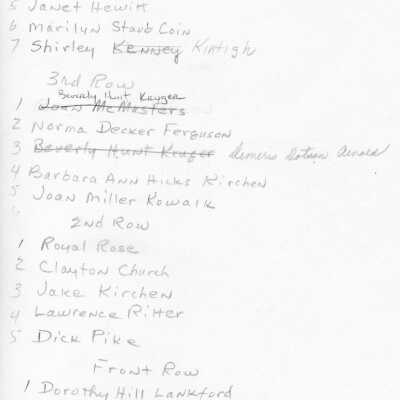 5 Janet Hewitt
6 Marilyn Staub Coin
7 Shirley Kenney Kintigh
3rd Row
Beverly Hunt Kruger
1 Joan McMasters
2 Norma Decker Ferguson
3 Beverly Hunt Kruger
4 Barbara Ann Hicks Kirchen
5 Joan Miller Kowalk
2nd Row
1 Royal Rose
2 Clayton Church
3 Jake Kirchen
4 Lawrence Ritter
5 Dick Pike
Front Row
1 Dorothy Hill Lankford